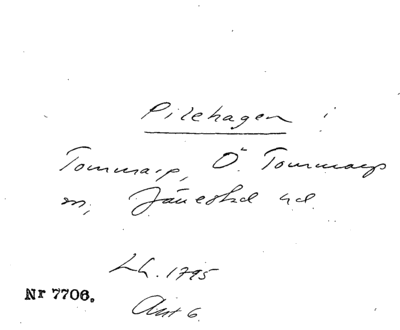 Pilehagen i
Tommarp, Ö. Tommarps
sn, Järrestad hd.
Lh. 1795
Nr 7706.
Akt 6